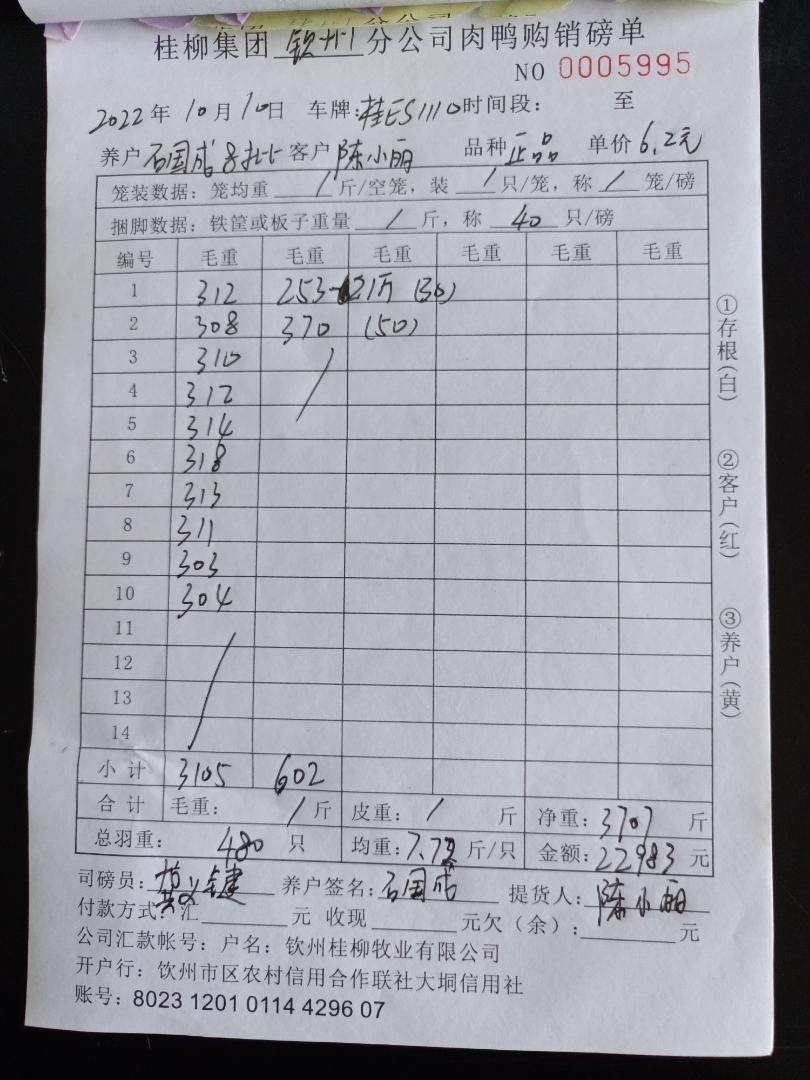 桂柳集团 钦州 分公司肉鸭购销磅单
NO 0005995
2022年10月10日 车牌:桂ES1110 时间段: 至
养户 石国成8批 客户 陈小丽 品种 正品 单价 6.2元
笼装数据: 笼均重 / 斤/空笼, 装 / 只/笼, 称 / 笼/磅
捆脚数据: 铁筐或板子重量 / 斤, 称 40 只/磅
编号 毛重 毛重 毛重 毛重 毛重 毛重
1 312 253-21斤 (30)
2 308 370 (50)
3 310 /
4 312
5 314
6 318
7 313
8 311
9 303
10 304
11 /
12
13
14
小计 3105 602
合计 毛重: / 斤 皮重: / 斤 净重: 3707 斤
总羽重: 480 只 均重: 7.72 斤/只 金额: 22983 元
司磅员: 键 养户签名: 石国成 提货人: 陈小丽
付款方式: 汇 元 收现 元欠(余): 元
公司汇款帐号: 户名: 钦州桂柳牧业有限公司
开户行: 钦州市区农村信用合作联社大垌信用社
账号: 8023 1201 0114 4296 07
①存根(白)
②客户(红)
③养户(黄)